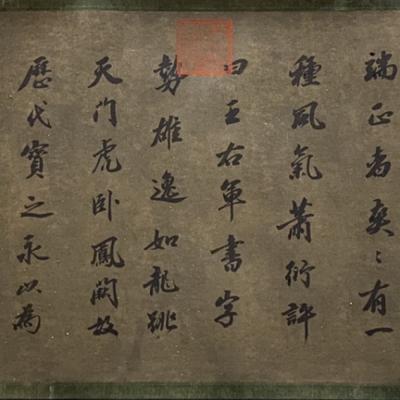 端正者奕〻有一
種風氣蕭衍評
曰王右軍書字
勢雄逸如龍跳
天門虎卧鳳闕故
歷代寶之永以為